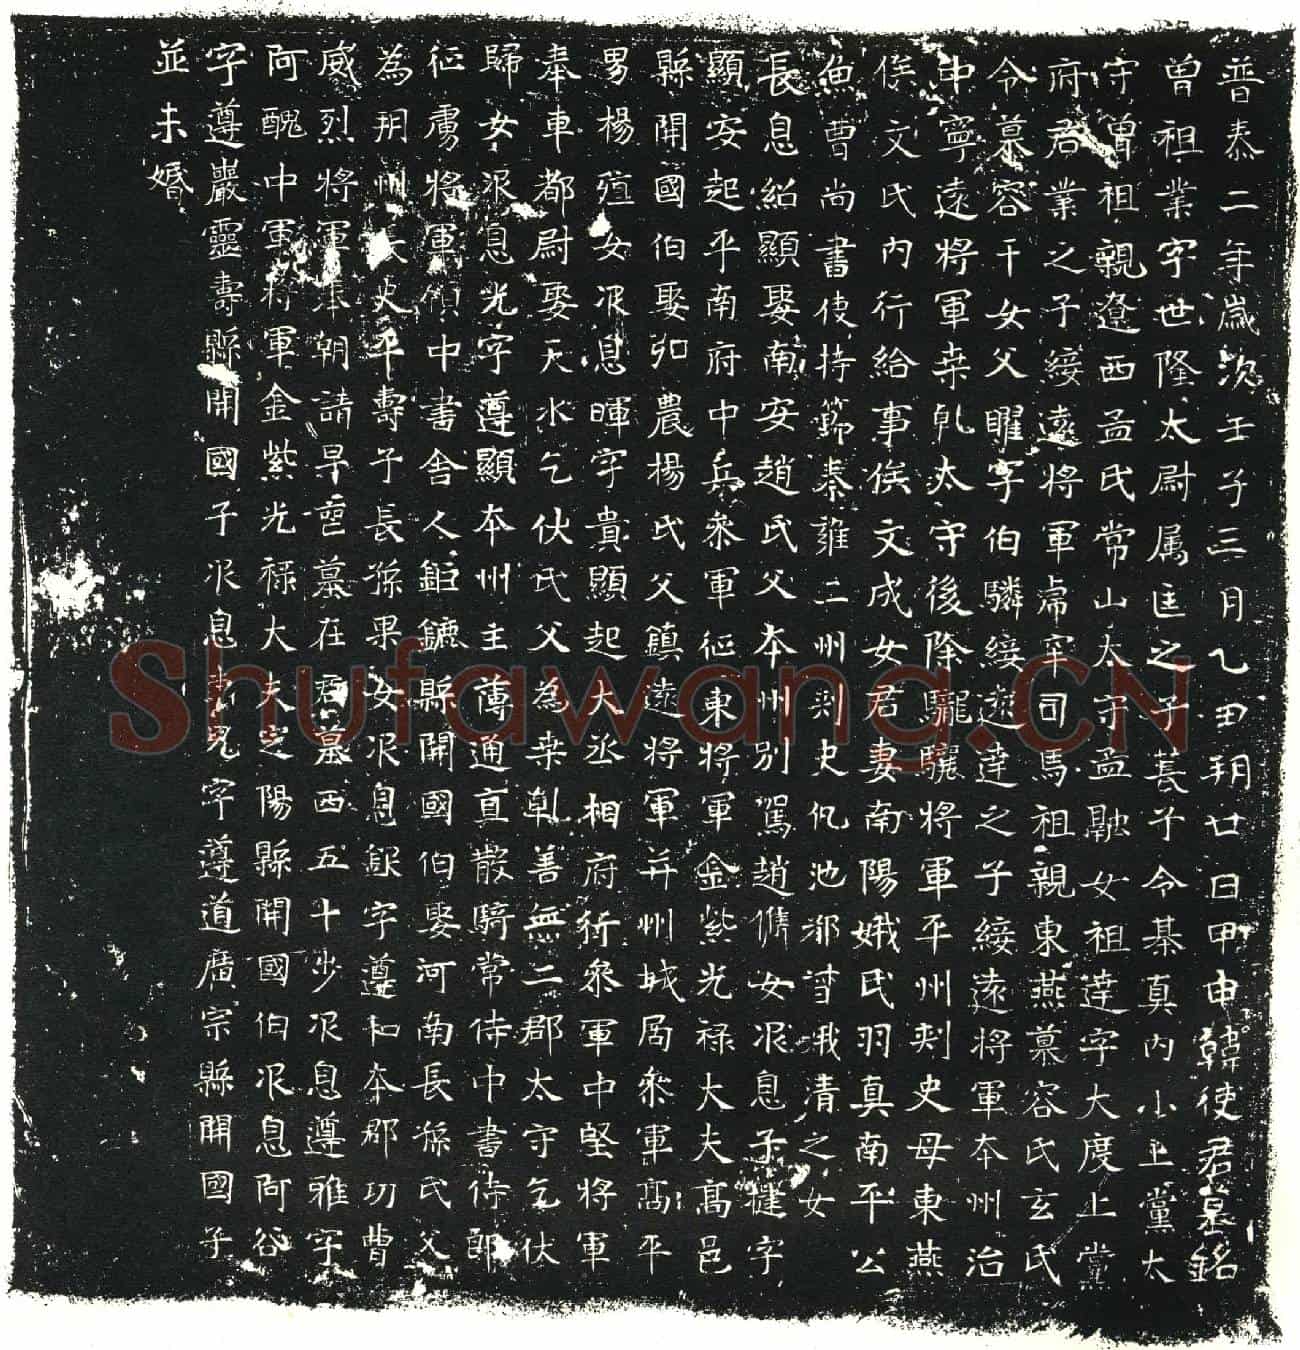 普泰二年歲次壬子三月乙丑朔廿日甲申韓使君墓銘
曾祖業字世隆太尉属匡之子襄子令綦真内小上黨太
守曾祖親遼西孟氏常山太守孟融女祖達字大度上黨
府君業之子綏遠將軍帶牢司馬祖親東燕慕容氏玄氏
令慕容干女父曜字伯驎綏遠達之子綏遠將軍本州治
中寧遠將軍桒乹太守後除驪驤將軍平州刺史母東燕
侯文氏内行給事侯文成女君妻南陽娥氏羽真南平公
魚曹尚書使持節秦雍二州刺史仇池都督娥清之女
長息紹顯娶南安趙氏父本州別駕趙儁女次息子捷字
顯安起平南府中兵叅軍征東將軍金紫光祿大夫高邑
縣開國伯娶弘農楊氏父鎮遠將軍并州城局叅軍高平
男楊殖女次息暉字貴顯起大丞相府行叅軍中堅將軍
奉車都尉娶天水乞伏氏父為桒乹善無二郡太守乞伏
歸女次息光字遵顯本州主薄通直散騎常侍中書侍郎
征虜將軍領中書舍人鉅鏕縣開國伯娶河南長孫氏父
為朔州長史平壽子長孫果女次息叡字遵和本郡功曹
威烈將軍奉朝請早密墓在君墓西五十步次息遵雅字
阿醜中軍將軍金紫光祿大夫定陽縣開國伯次息阿谷
字遵嚴靈壽縣開國子次息袁兒字遵道廣宗縣開國子
並未婚
Shufawang.CN